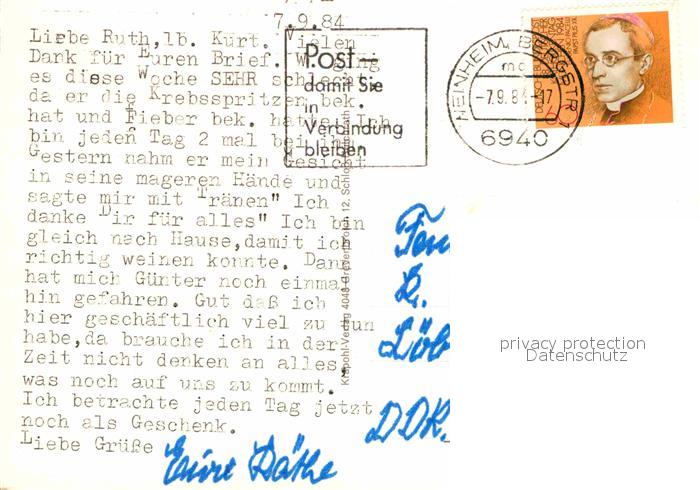 7.9.84
Liebe Ruth, lb. Kurt. Vielen
Dank für Euren Brief. W. ging
es diese Woche SEHR schlecht,
da er die Krebsspritzen bek.
hat und Fieber bek. hatte. Ich
bin jeden Tag 2 mal bei ihm.
Gestern nahm er mein Gesicht
in seine mageren Hände und
sagte mir mit Tränen" Ich
danke Dir für alles" Ich bin
gleich nach Hause, damit ich
richtig weinen konnte. Dann
hat mich Günter noch einmal
hin gefahren. Gut daß ich
hier geschäftlich viel zu tun
habe, da brauche ich in der
Zeit nicht denken an alles,
was noch auf uns zu kommt.
Ich betrachte jeden Tag jetzt
noch als Geschenk.
Liebe Grüße
Eure Käthe
Post
damit Sie
in
Verbindung
bleiben
WEINHEIM, BERGSTR
-7.9.84-17
6940
60
Krapohl-Verlag 4048 Grevenbroich 12,
Fam
R.
Löb
DDR.
privacy protection
Datenschutz